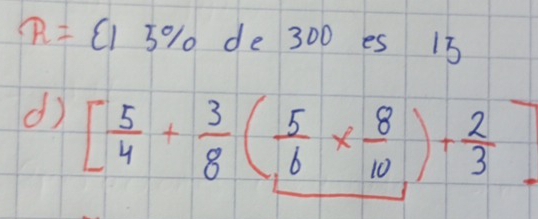 R = El 5% de 300 es 15
d) [ 5/4 + 3/8 ( 5/6 × 8/10 ) + 2/3 ]